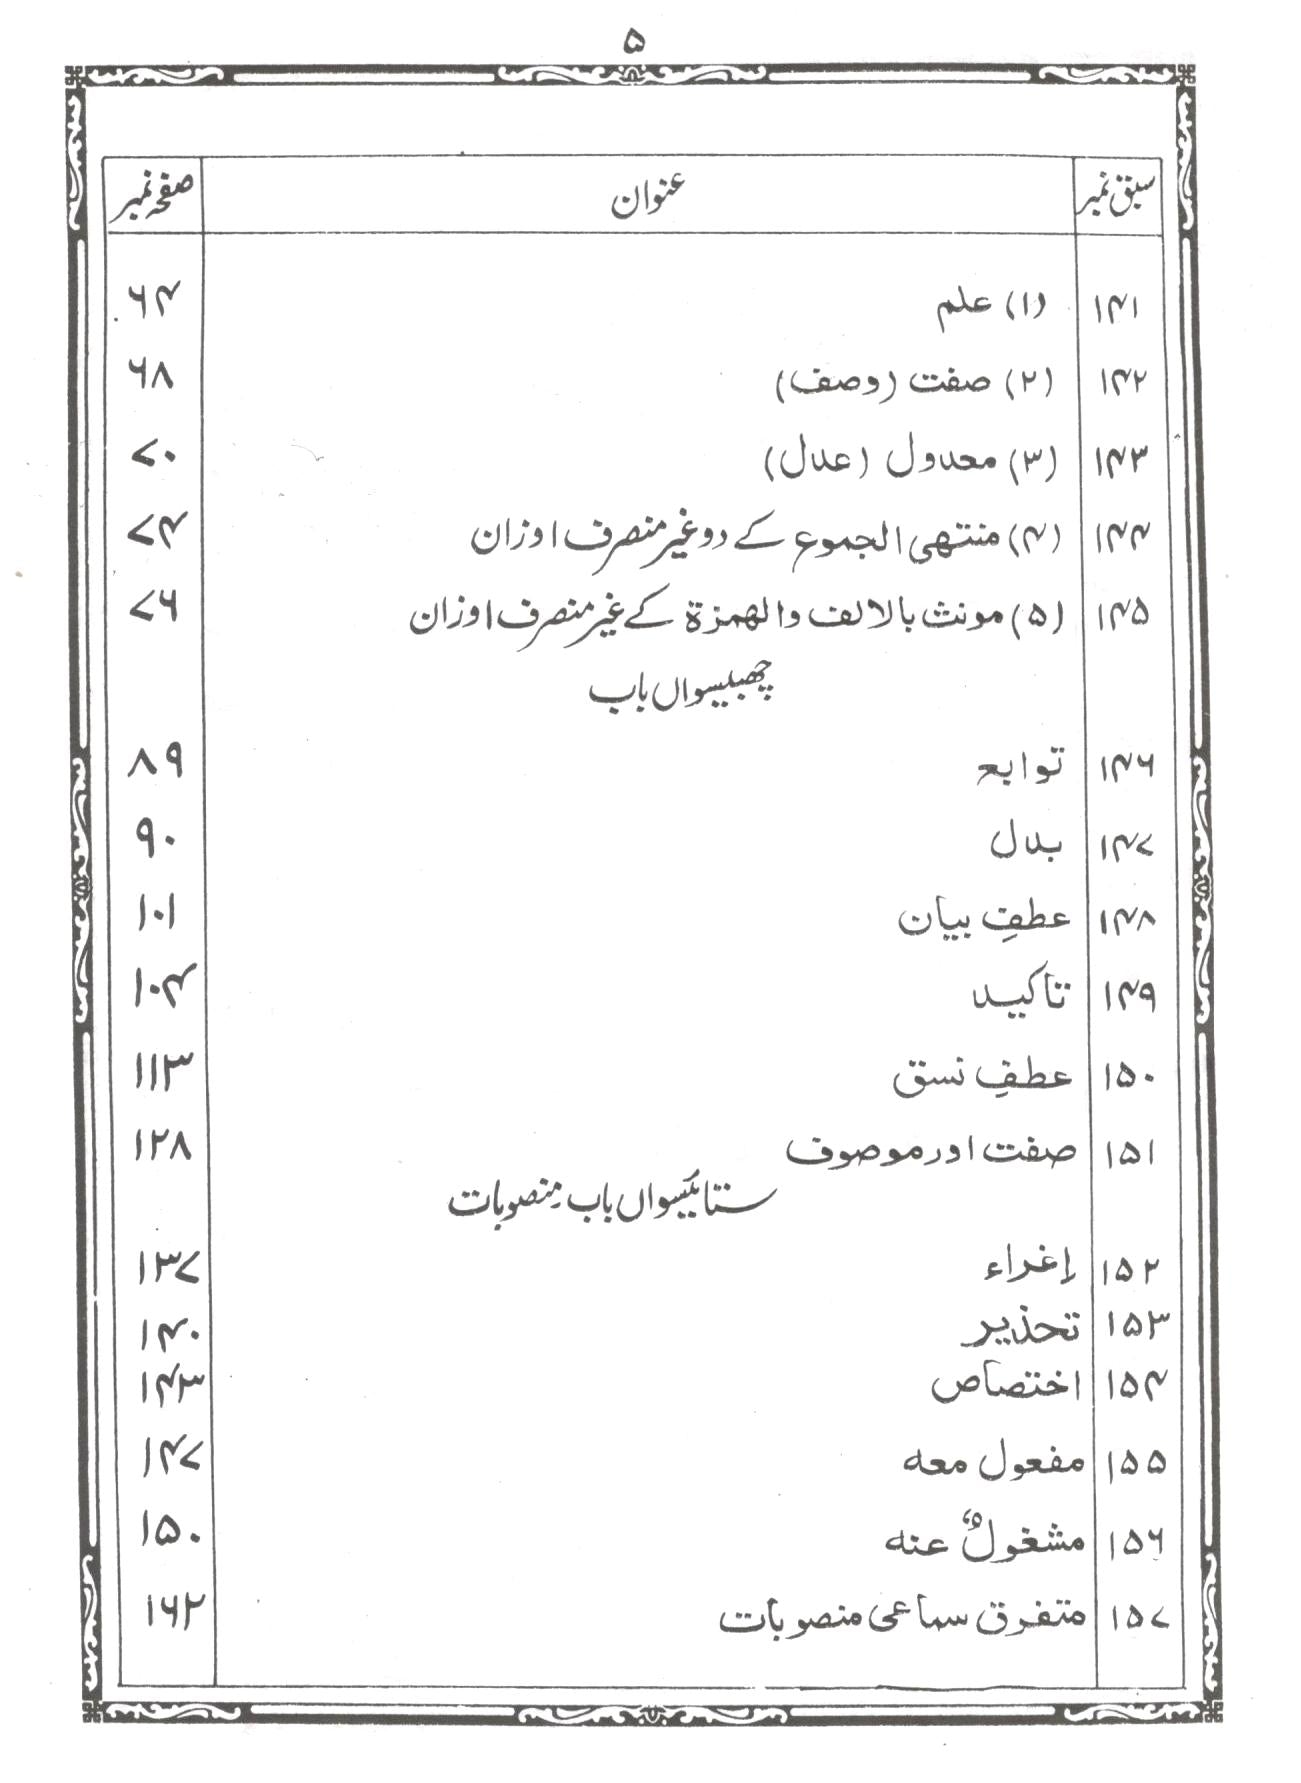 ۵
سبق نمبر عنوان صفحہ نمبر
۱۴۱ (۱) علم ۶۴
۱۴۲ (۲) صفت (وصف) ۶۸
۱۴۳ (۳) معدول (عدل) ۷۰
۱۴۴ (۴) منتهی الجموع کے دو غیر منصرف اوزان ۷۴
۱۴۵ (۵) مونث بالالف والهمزة کے غیر منصرف اوزان ۷۶
چھبیسواں باب
۱۴۶ توابع ۸۹
۱۴۷ بدل ۹۰
۱۴۸ عطفِ بیان ۱۰۱
۱۴۹ تاکید ۱۰۴
۱۵۰ عطفِ نسق ۱۱۳
۱۵۱ صفت اور موصوف ۱۲۸
ستائیسواں باب۔ منصوبات
۱۵۲ إغراء ۱۳۷
۱۵۳ تحذیر ۱۴۰
۱۵۴ اختصاص ۱۴۳
۱۵۵ مفعول معه ۱۴۷
۱۵۶ مشغولٌ عنه ۱۵۰
۱۵۷ متفرق سماعی منصوبات ۱۶۲